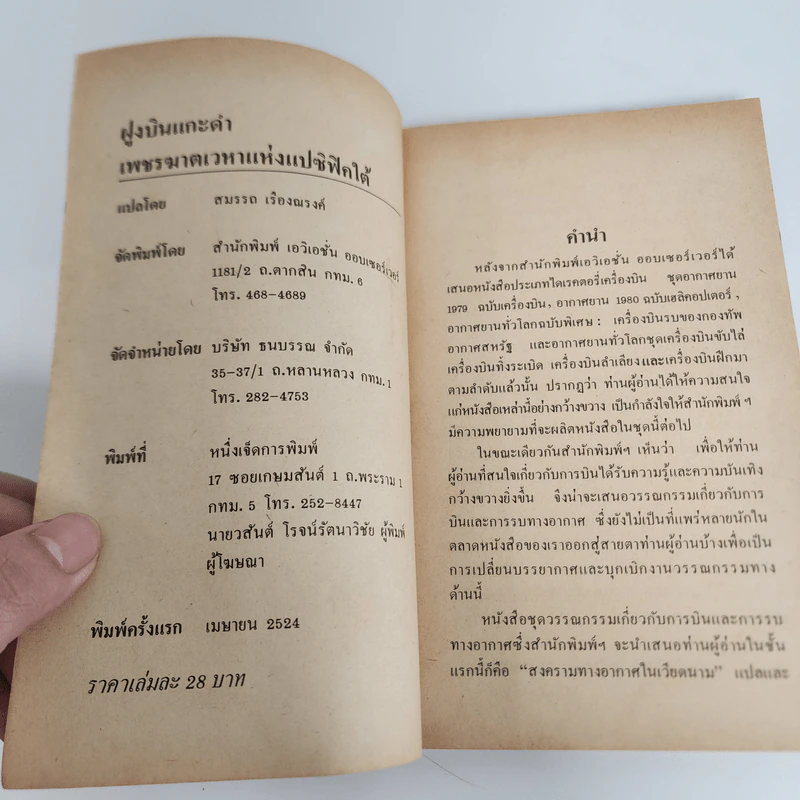 ฝูงบินแกะดำ
เพชรฆาตเวหาแห่งแปซิฟิคใต้
แปลโดย สมรรถ เรืองณรงค์
จัดพิมพ์โดย สำนักพิมพ์ เอวิเอชั่น ออบเซอร์เวอร์
1181/2 ถ.ตากสิน กทม. 6
โทร. 468-4689
จัดจำหน่ายโดย บริษัท ธนบรรณ จำกัด
35-37/1 ถ.หลานหลวง กทม. 1
โทร. 282-4753
พิมพ์ที่ หนึ่งเจ็ดการพิมพ์
17 ซอยเกษมสันต์ 1 ถ.พระราม 1
กทม. 5 โทร. 252-8447
นายวสันต์ โรจน์รัตนาวิชัย ผู้พิมพ์
ผู้โฆษณา
พิมพ์ครั้งแรก เมษายน 2524
ราคาเล่มละ 28 บาท
คำนำ
หลังจากสำนักพิมพ์เอวิเอชั่น ออบเซอร์เวอร์ได้
เสนอหนังสือประเภทไดเรคตอรี่เครื่องบิน ชุดอากาศยาน
1979 ฉบับเครื่องบิน, อากาศยาน 1980 ฉบับเฮลิคอปเตอร์,
อากาศยานทั่วโลกฉบับพิเศษ : เครื่องบินรบของกองทัพ
อากาศสหรัฐ และอากาศยานทั่วโลกชุดเครื่องบินขับไล่
เครื่องบินทิ้งระเบิด เครื่องบินลำเลียงและเครื่องบินฝึกมา
ตามลำดับแล้วนั้น ปรากฏว่า ท่านผู้อ่านได้ให้ความสนใจ
แก่หนังสือเหล่านี้อย่างกว้างขวาง เป็นกำลังใจให้สำนักพิมพ์ ฯ
มีความพยายามที่จะผลิตหนังสือในชุดนี้ต่อไป
ในขณะเดียวกันสำนักพิมพ์ฯ เห็นว่า เพื่อให้ท่าน
ผู้อ่านที่สนใจเกี่ยวกับการบินได้รับความรู้และความบันเทิง
กว้างขวางยิ่งขึ้น จึงน่าจะเสนอวรรณกรรมเกี่ยวกับการ
บินและการรบทางอากาศ ซึ่งยังไม่เป็นที่แพร่หลายนักใน
ตลาดหนังสือของเราออกสู่สายตาท่านผู้อ่านบ้างเพื่อเป็น
การเปลี่ยนบรรยากาศและบุกเบิกงานวรรณกรรมทาง
ด้านนี้
หนังสือชุดวรรณกรรมเกี่ยวกับการบินและการรบ
ทางอากาศซึ่งสำนักพิมพ์ฯ จะนำเสนอท่านผู้อ่านในชั้น
แรกนี้ก็คือ “สงครามทางอากาศในเวียดนาม” แปลและ